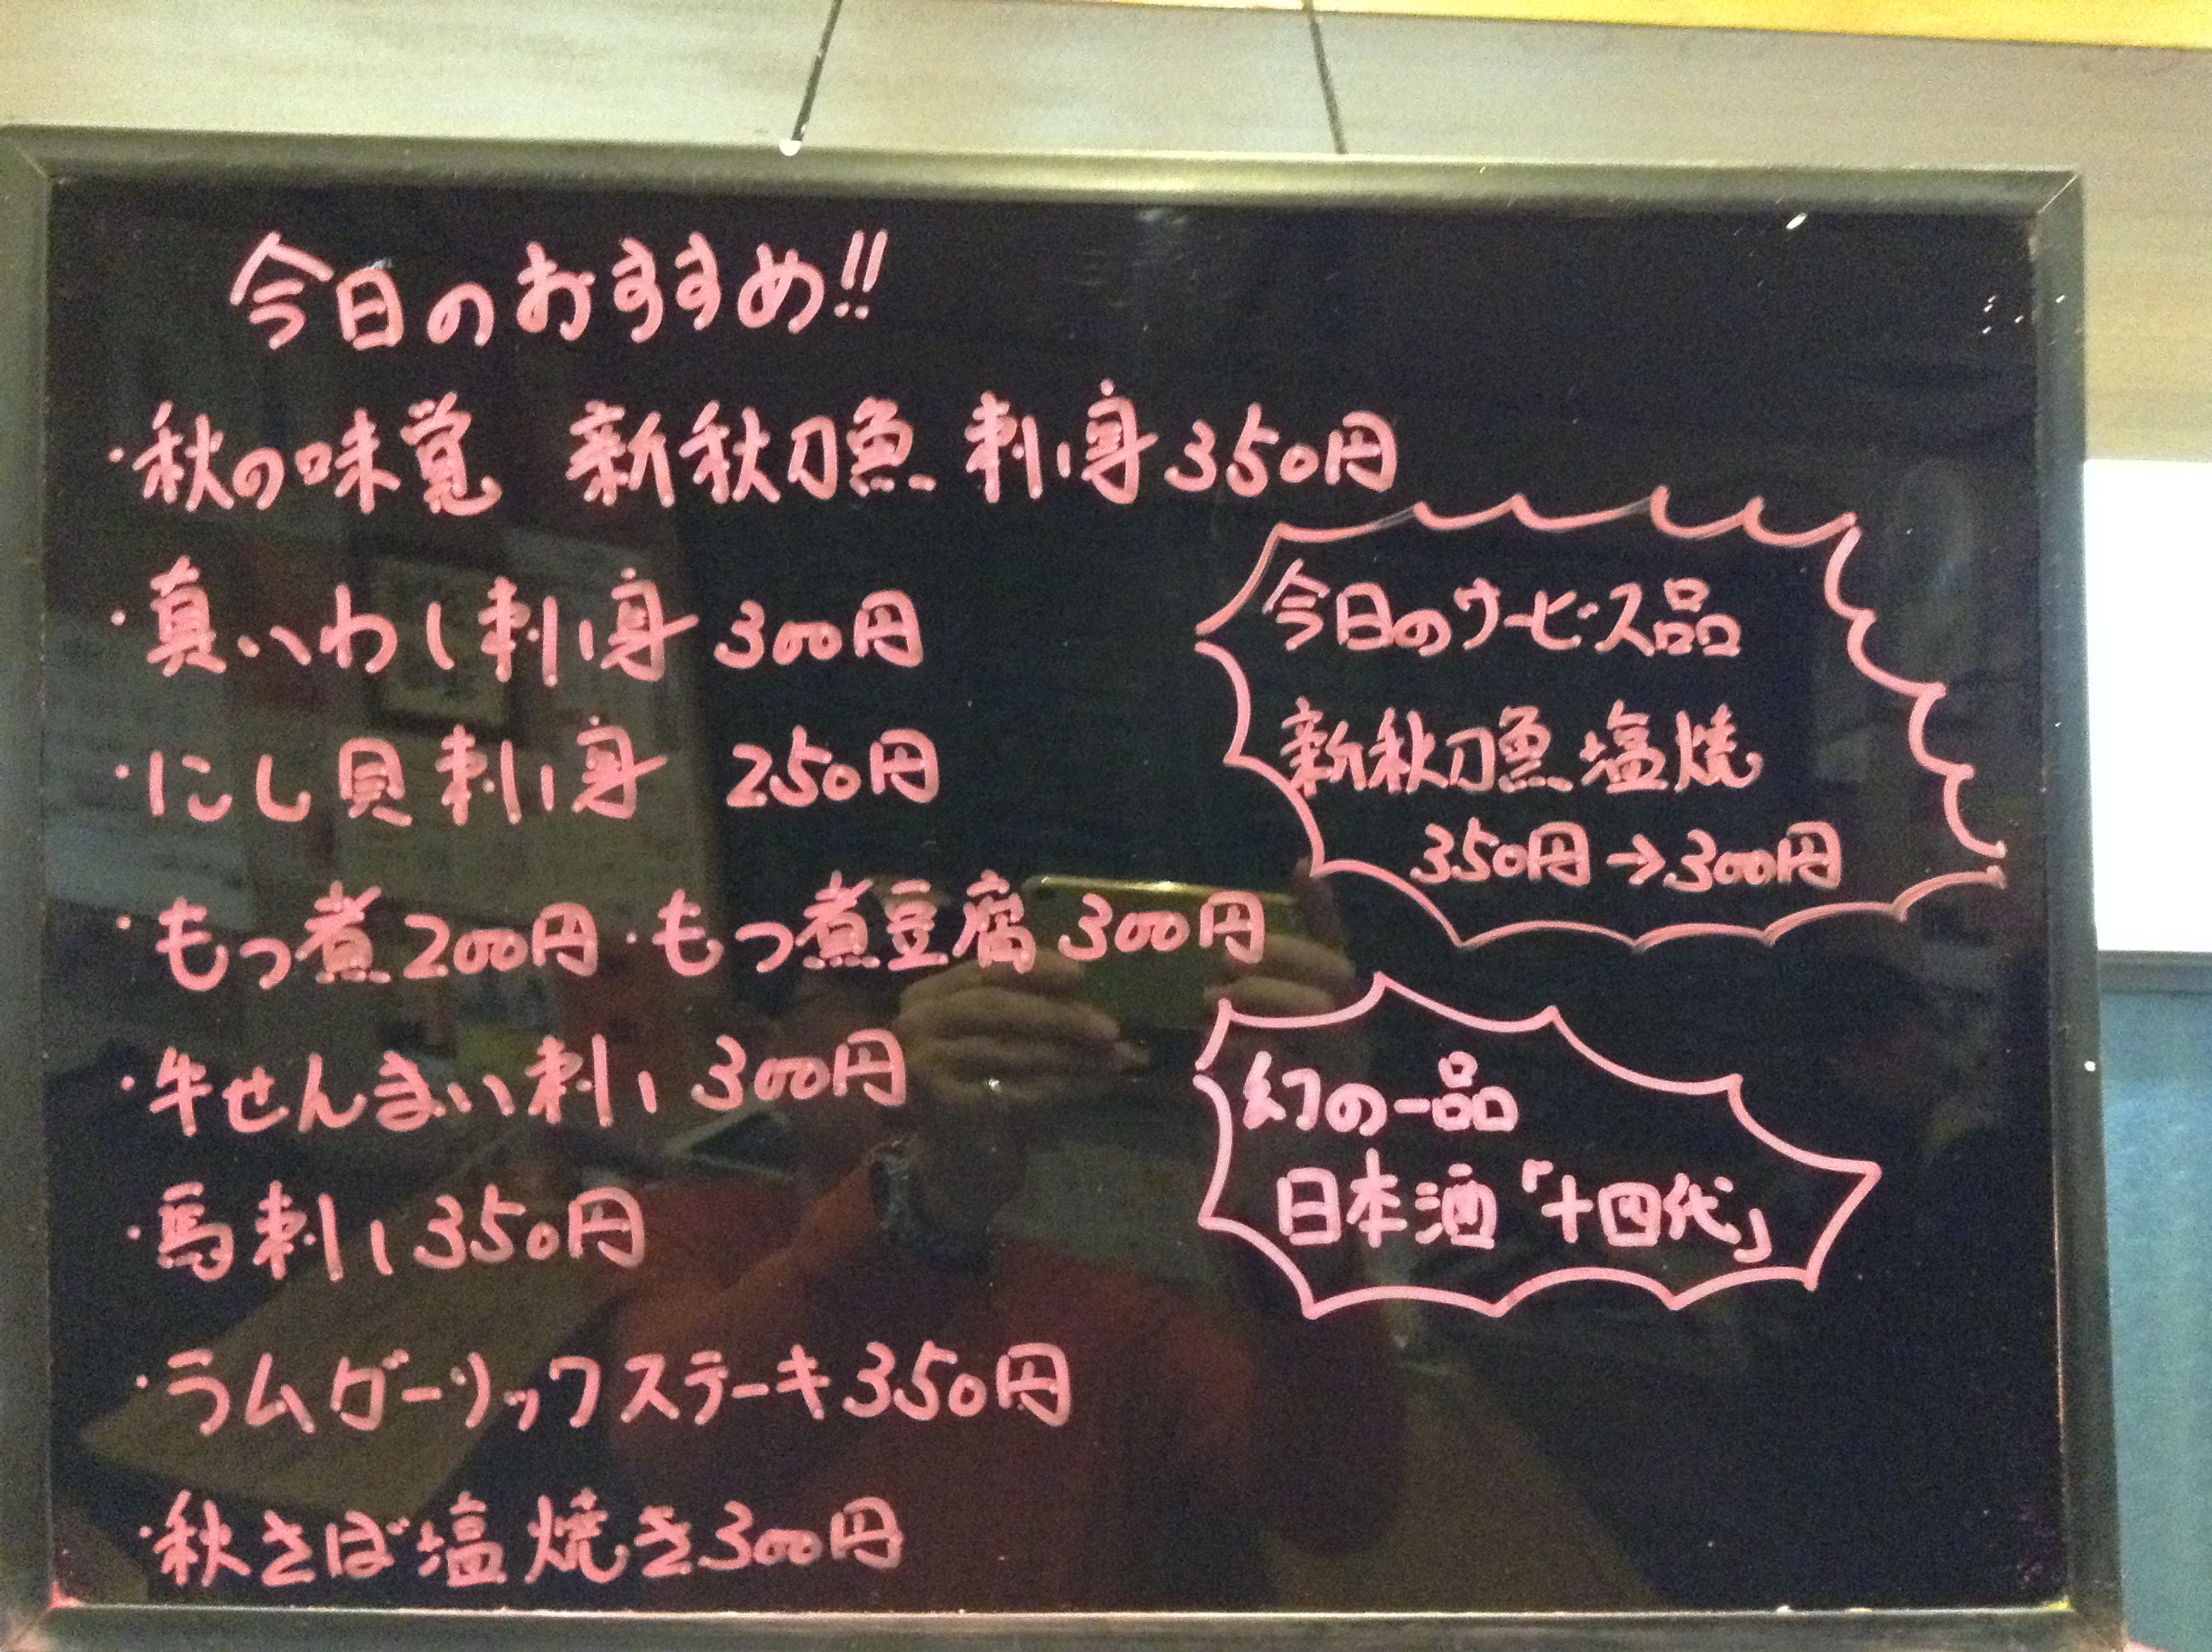 今日のおすすめ!!
・秋の味覚 新秋刀魚 刺し身 350円
・真いわし刺し身 300円
・にし貝刺し身 250円
・もつ煮200円・もつ煮豆腐300円
・牛せんまい刺し 300円
・馬刺し350円
・ラムガーリックステーキ350円
・秋さば塩焼き300円
今日のサービス品
新秋刀魚塩焼
350円→300円
幻の一品
日本酒「十四代」